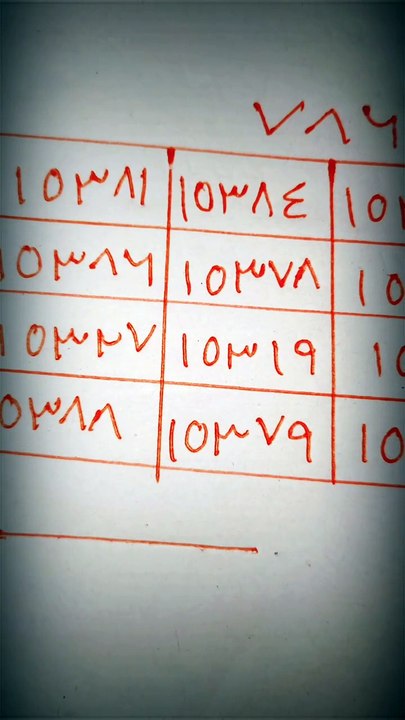 ٧٨۶
١٥٣٨١ ١٥٣٨٤ ١٥
١٥٣٨۶ ١٥٣٧٨ ١٥
١٥٣٣٧ ١٥٣١٩ ١٥
٥٣٨٨ ١٥٣٧٩ ١٥